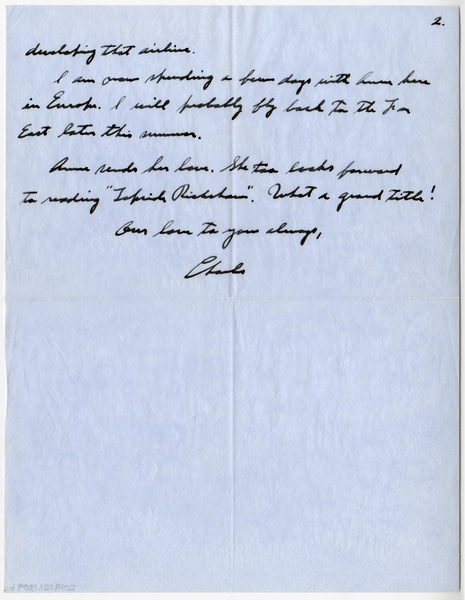 2.
developing that airline.
I am now spending a few days with Anne here
in Europe. I will probably fly back to the Far
East later this summer.
Anne sends her love. She too looks forward
to reading "Topside Rickshaw". What a grand title!
Our love to you always,
Charles